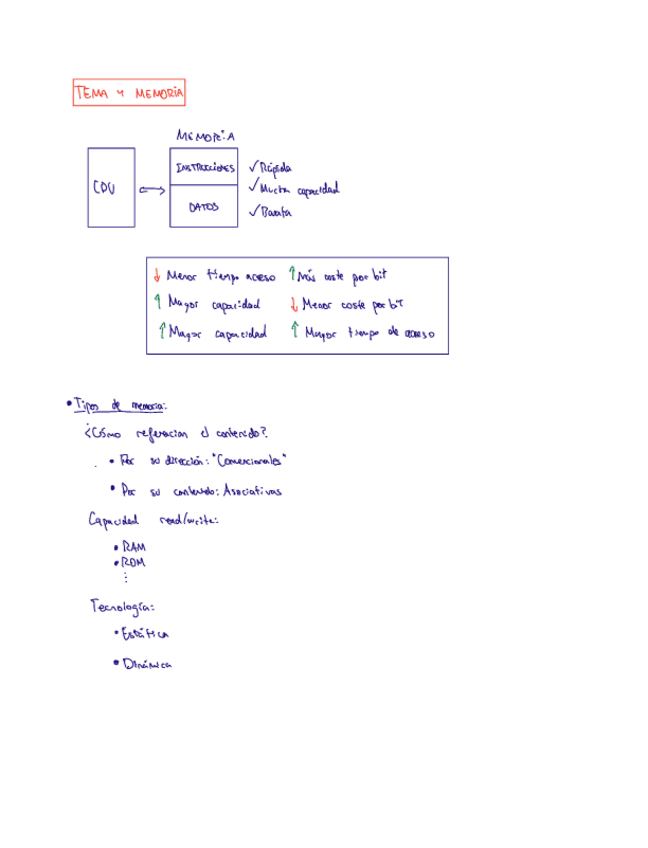 TEMA 4 MEMORIA
MEMORIA
CPU
INSTRUCCIONES
DATOS
✓ Rápida
✓ Mucha capacidad
✓ Barata
↓ Menor tiempo acceso ↑ Más coste por bit
↑ Mayor capacidad ↓ Menor coste por bit
↑ Mayor capacidad ↑ Mayor tiempo de acceso
• Tipos de memoria:
¿Cómo referencian el contenido?
• Por su dirección: "Convencionales"
• Por su contenido: Asociativas
Capacidad read/write:
• RAM
• ROM
⋮
Tecnología:
• Estática
• Dinámica